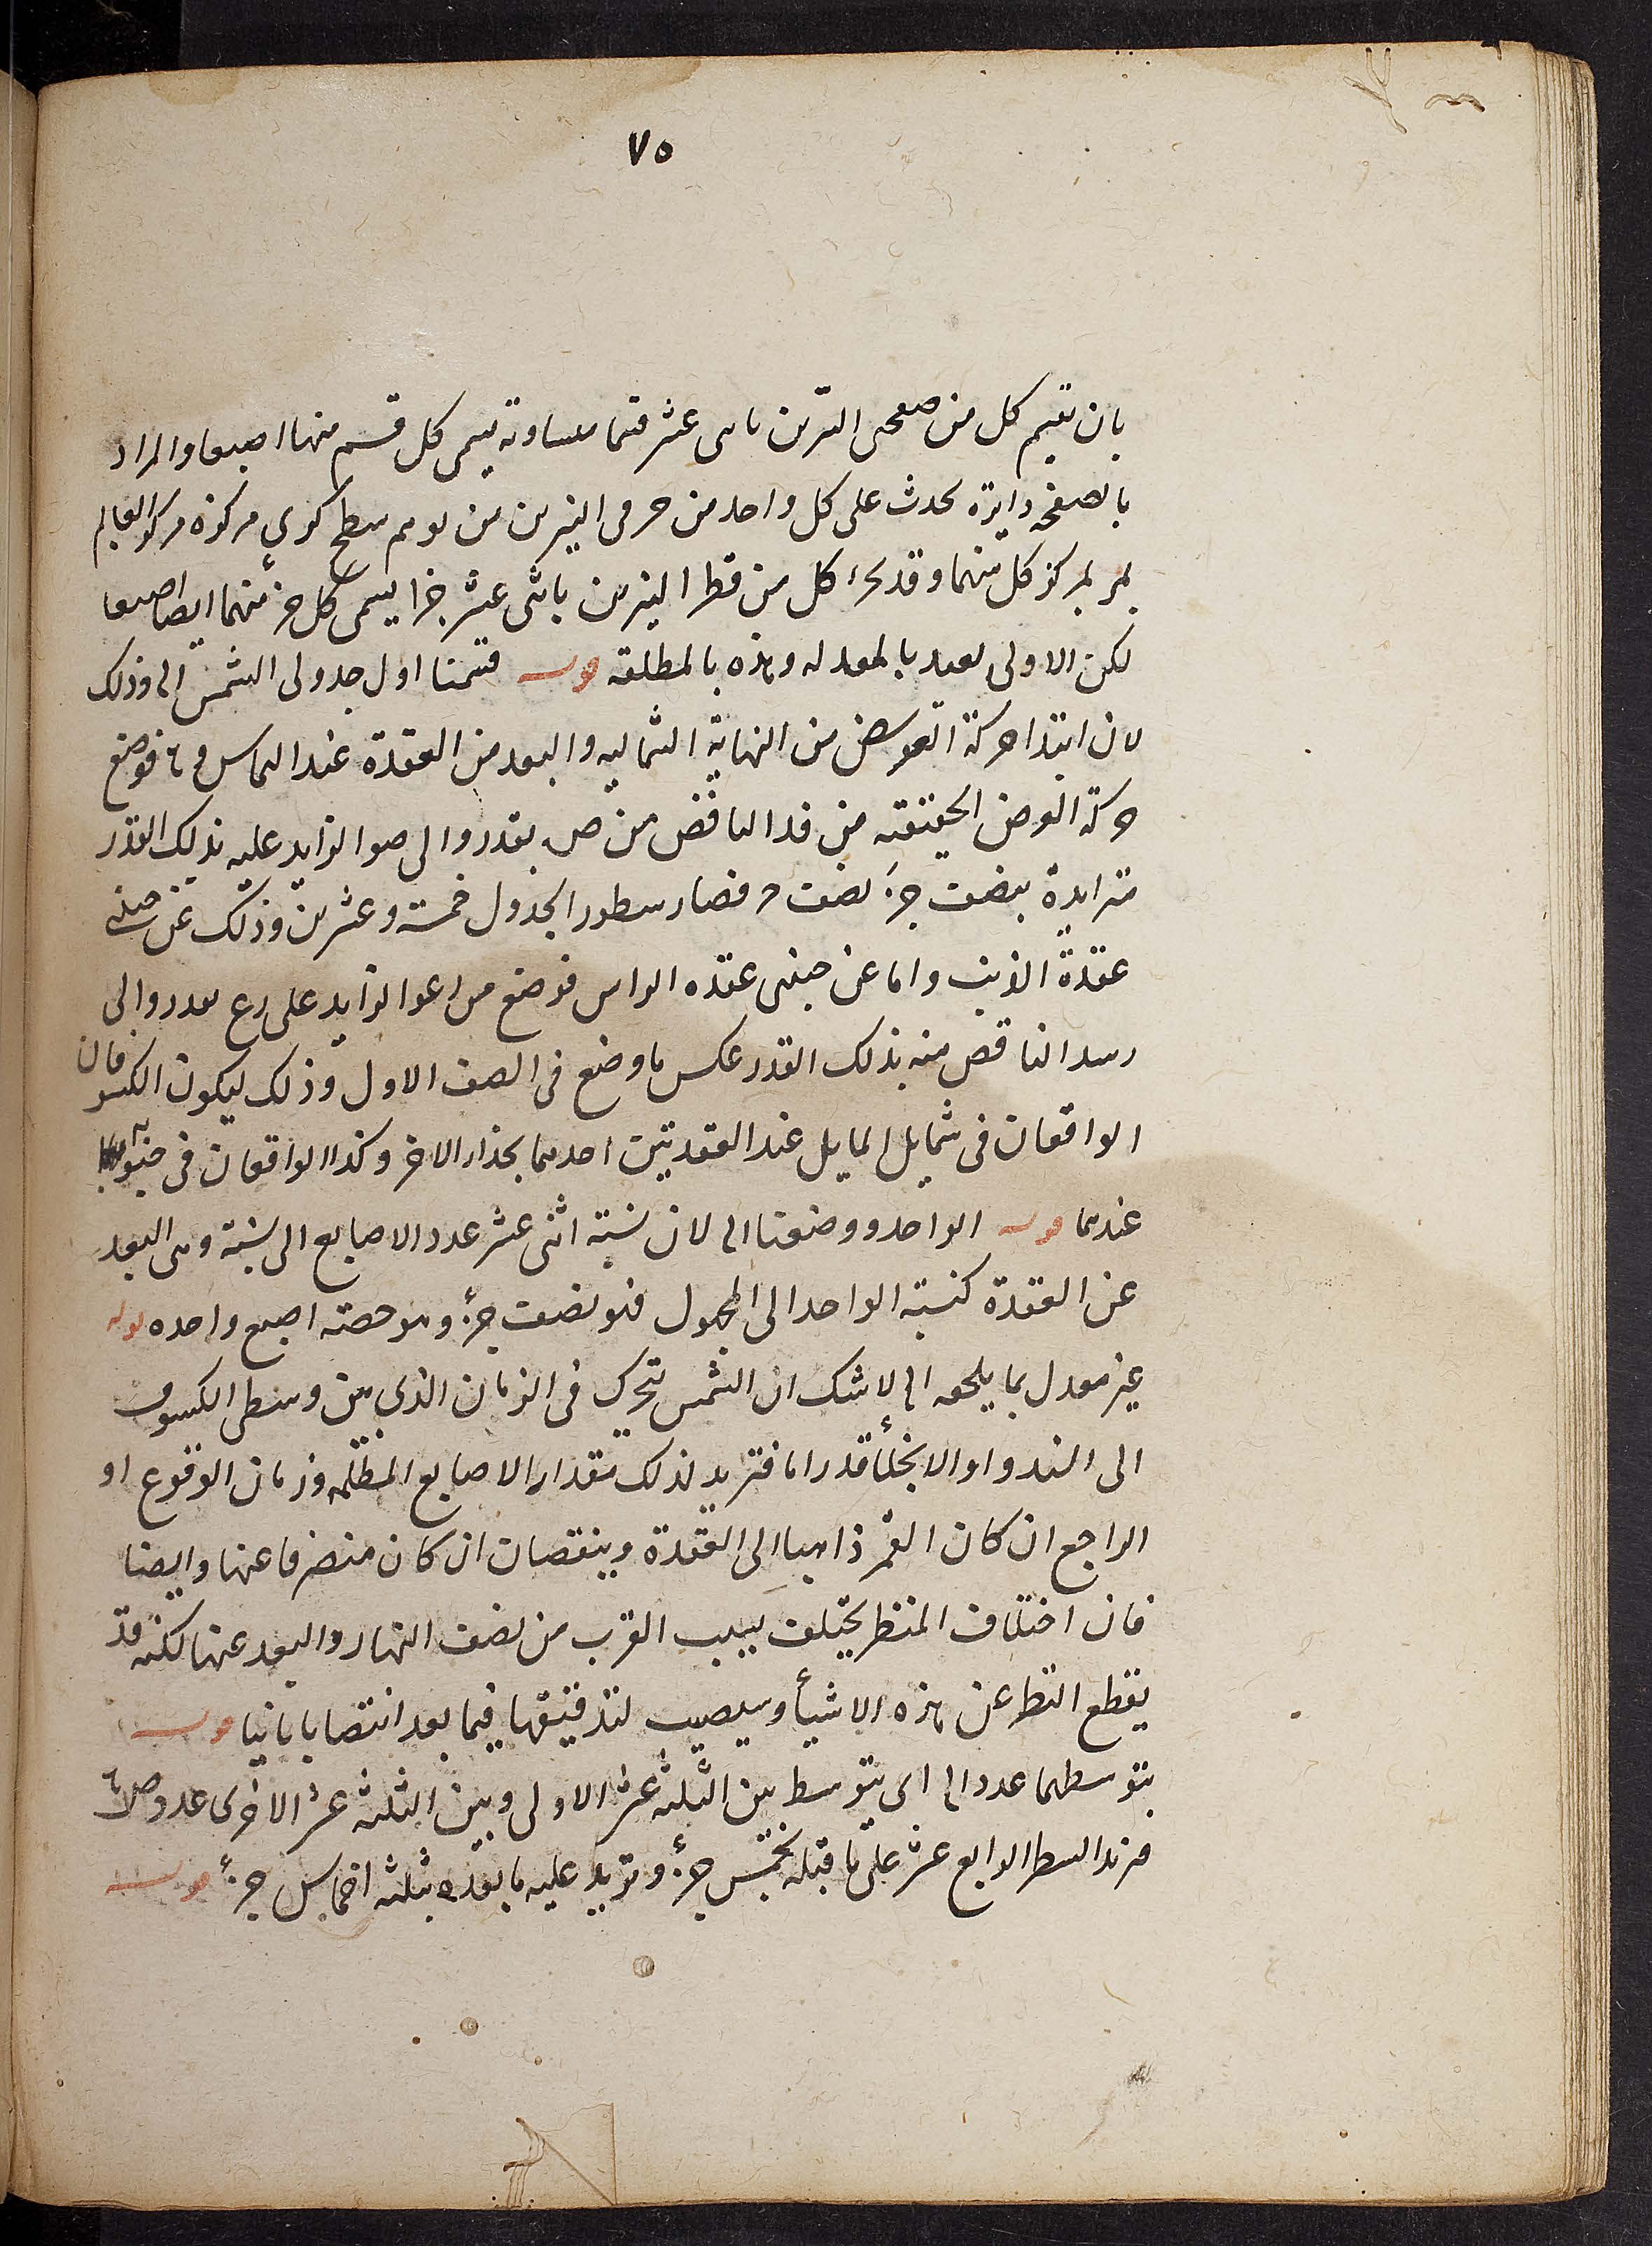 ٧٥
بان يقسم كل من صفحتى النيرين باثنى عشر قسما متساوية يسمى كل قسم منها اصبعا والمراد
بالصفحة دايرة تحدث على كل واحد من جرمى النيرين من توهم سطح كرى مركزه مركز العالم
يمر بمركز كل منهما وقد يجزء كل من قطر النيرين باثنى عشر جزا يسمى كل جزء منهما ايضا اصبعا
لكن الاولى تقيد بالمعدله وهذه بالمطلقه قوله قسمنا اول جدولى الشمس الخ وذلك
لان ابتدا حركة العرض من النهاية الشماليه والبعد من العقدة عند التماس فوضع
حركة العرض الحقيقته من فد الناقص من ص بقدر والى صو الزايد عليه بذلك القدر
متزايدة بنصف جزء نصف فصار سطور الجدول خمسة وعشرين وذلك عن جنبتى
عقدة الذنب واما عن جنبتى عقده الراس فوضع من رعو الزايد على رع بقدر والى
رسد الناقص منه بذلك القدر عكس ما وضع فى الصف الاول وذلك ليكون الكسوفان
الواقعان فى شمايل المايل عند العقدتين احدهما بحذاء الاخر وكذا الواقعان فى
عندهما قوله الواحد ووضعنا الخ لان نسبة اثنى عشر عدد الاصابع الى ستة وهى البعد
عن العقدة كنسبة الواحد الى المجهول فهو نصف جزء وهو حصته اصبع واحده قوله
غير معدل بما يلحقه الخ لا شك ان الشمس تتحرك فى الزمان الذى بين وسطى الكسوف
الى البدو او الانجلأ قدرا ما فتزيد لذلك مقدار الاصابع المظلمه وزمان الوقوع او
الراجع ان كان القمر ذاهبا الى العقدة وينقصان ان كان منصرفا عنها وايضا
فان اختلاف المنظر يختلف بسبب القرب من نصف النهار والبعد عنها لكنه قد
يقطع النظر عن هذه الاشيأ وسيصيب لتدقيقها فيما بعد انتصابا بانيا قوله
يتوسطهما عدد الخ اى يتوسط بين الثلثة عشر الاولى وبين الثلثة عشر الاخرى عدد
فزيد السطر الرابع عشر على ما قبله بخمس جزء وتزيد عليه ما بعده بثلثة اخماس جزء قوله